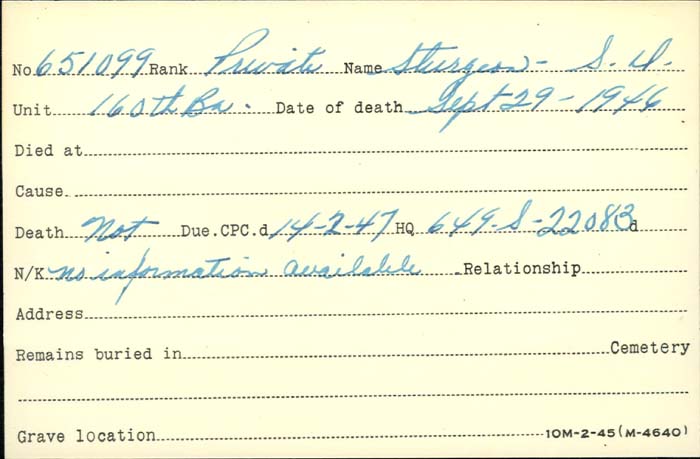 No. 651099 Rank Private Name Sturgeon - S. D.
Unit 160th Bn. Date of death Sept 29 - 1946
Died at
Cause
Death Not Due. CPC.d 14-2-47 HQ 649-S-22083 d
N/K no information available Relationship
Address
Remains buried in Cemetery
Grave location 10M-2-45 (M-4640)